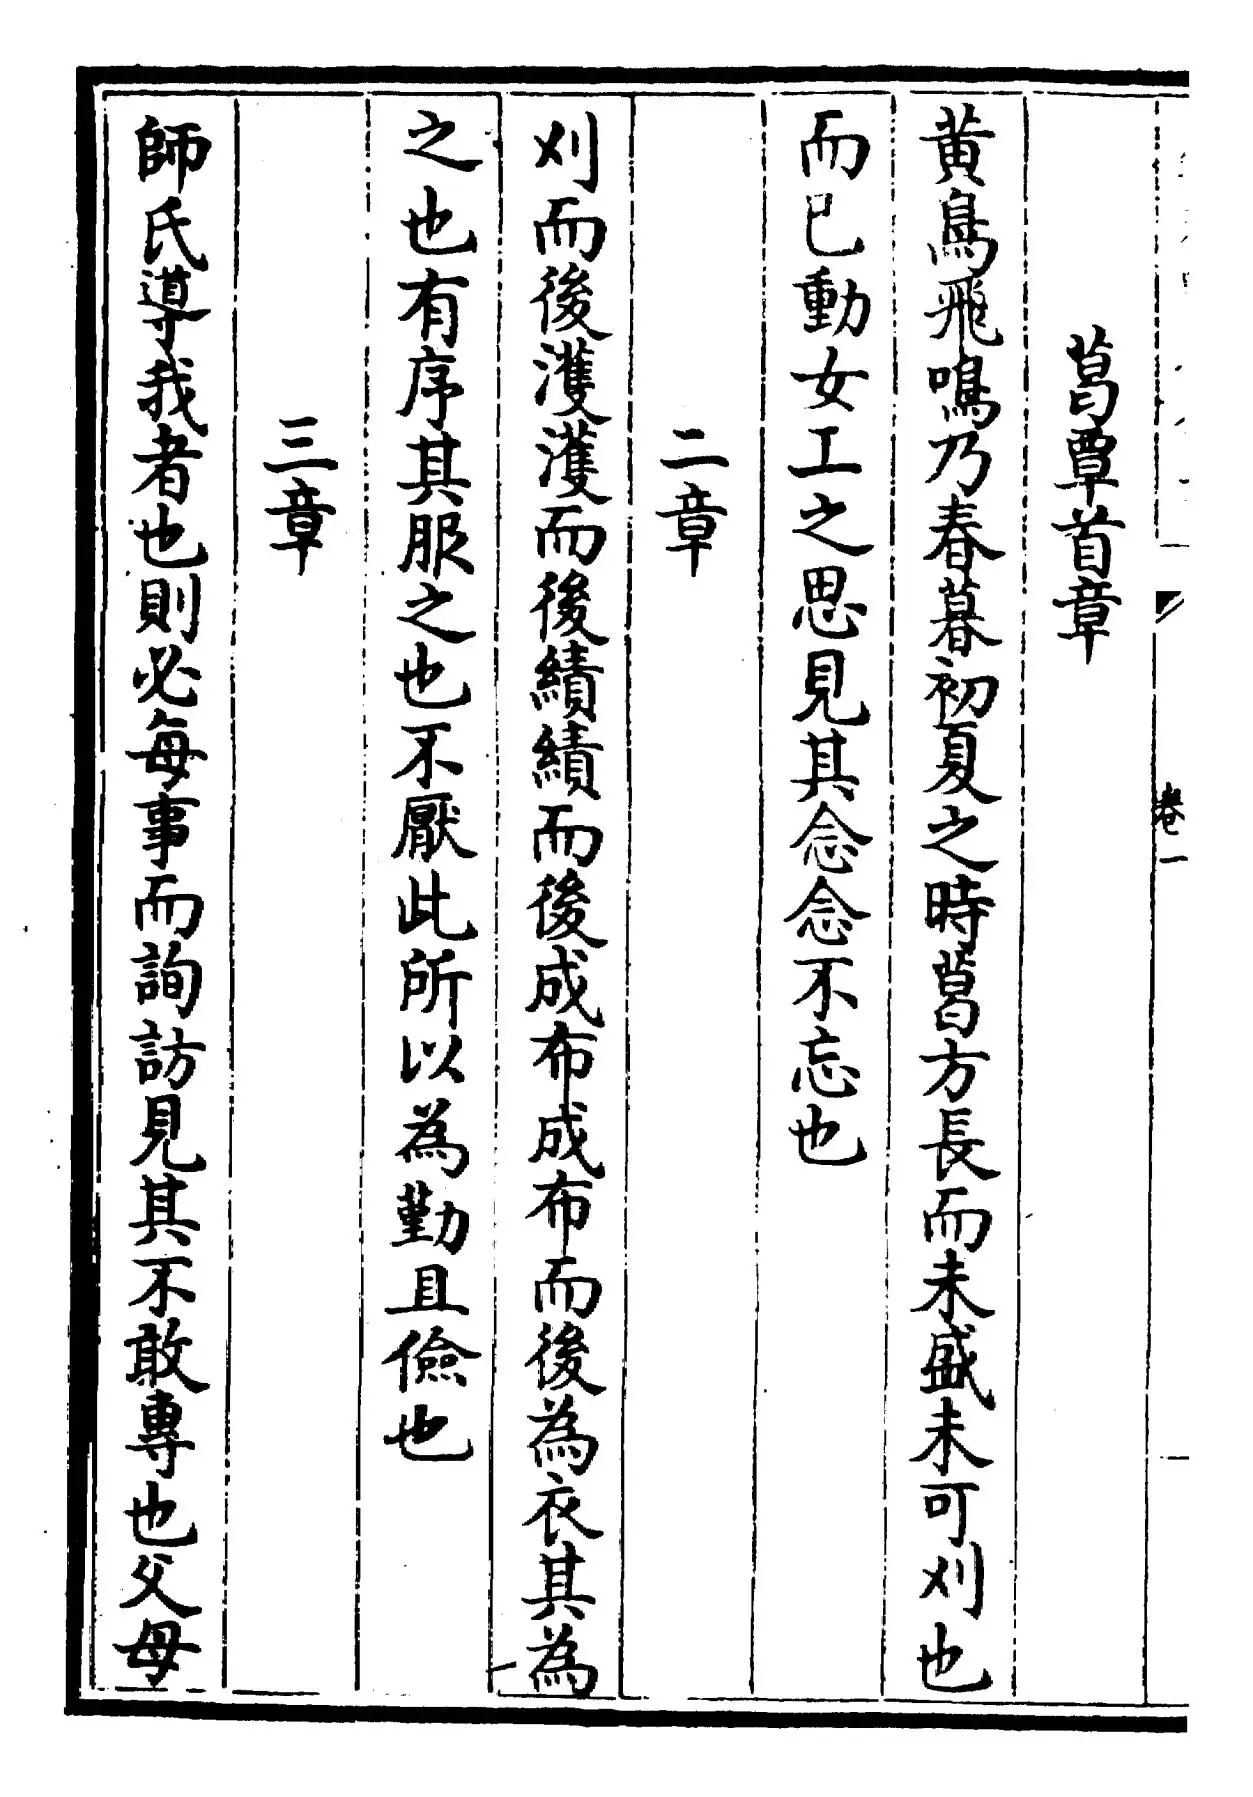 卷一
葛覃首章
黃鳥飛鳴乃春暮初夏之時葛方長而未盛未可刈也
而已動女工之思見其念念不忘也
二章
刈而後濩濩而後績績而後成布成布而後為衣其為
之也有序其服之也不厭此所以為勤且儉也
三章
師氏導我者也則必每事而詢訪見其不敢專也父母